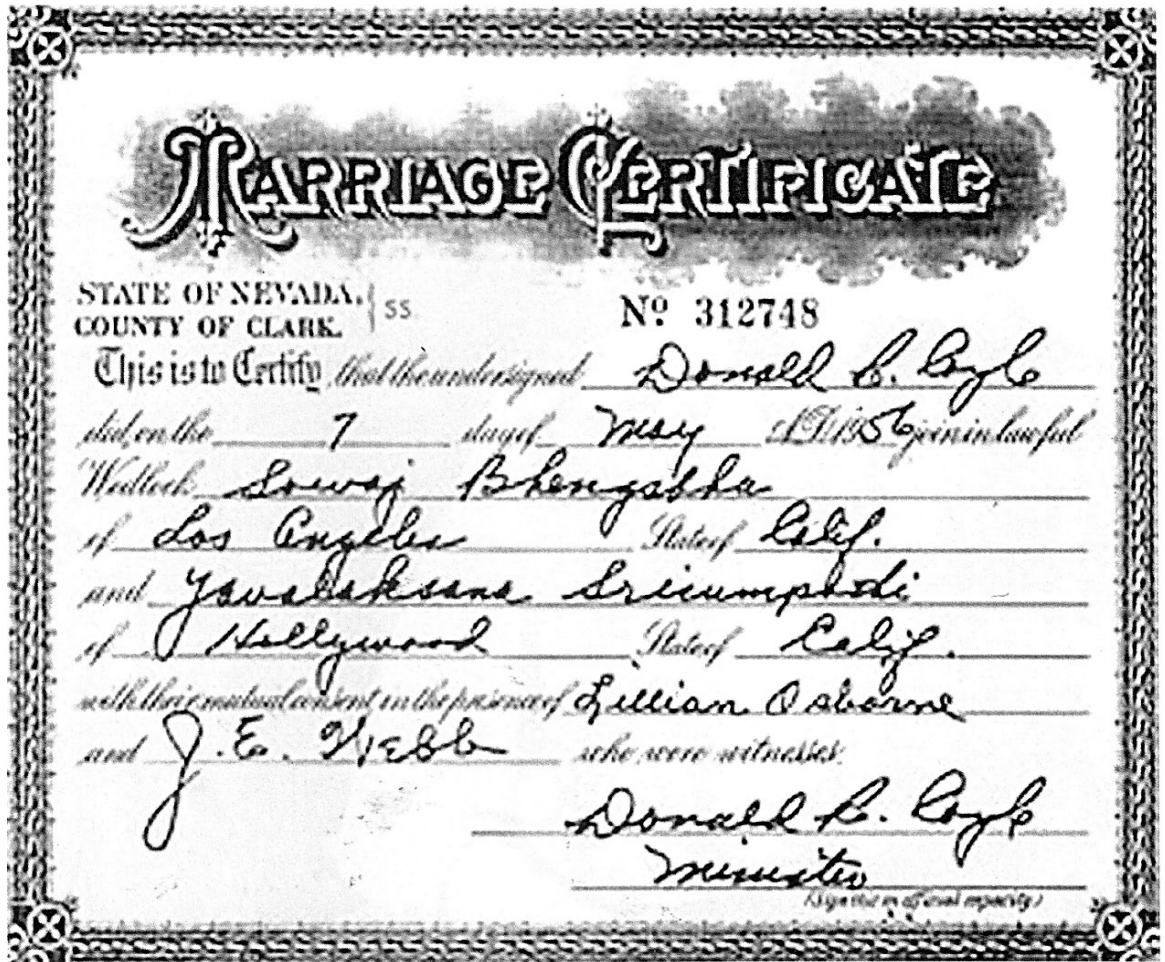 MARRIAGE CERTIFICATE
STATE OF NEVADA, } SS
COUNTY OF CLARK.
Nº 312748
This is to Certify that the undersigned Donald C. Coyle
did, on the 7 day of May A.D. 1956 join in lawful
Wedlock
of Los Angeles State of Calif.
and Yavalaksana
of Hollywood State of Calif.
with their mutual consent in the presence of Lillian Osborne
and J. E. Webb who were witnesses.
Donald C. Coyle
Minister
(Sign this in official capacity)